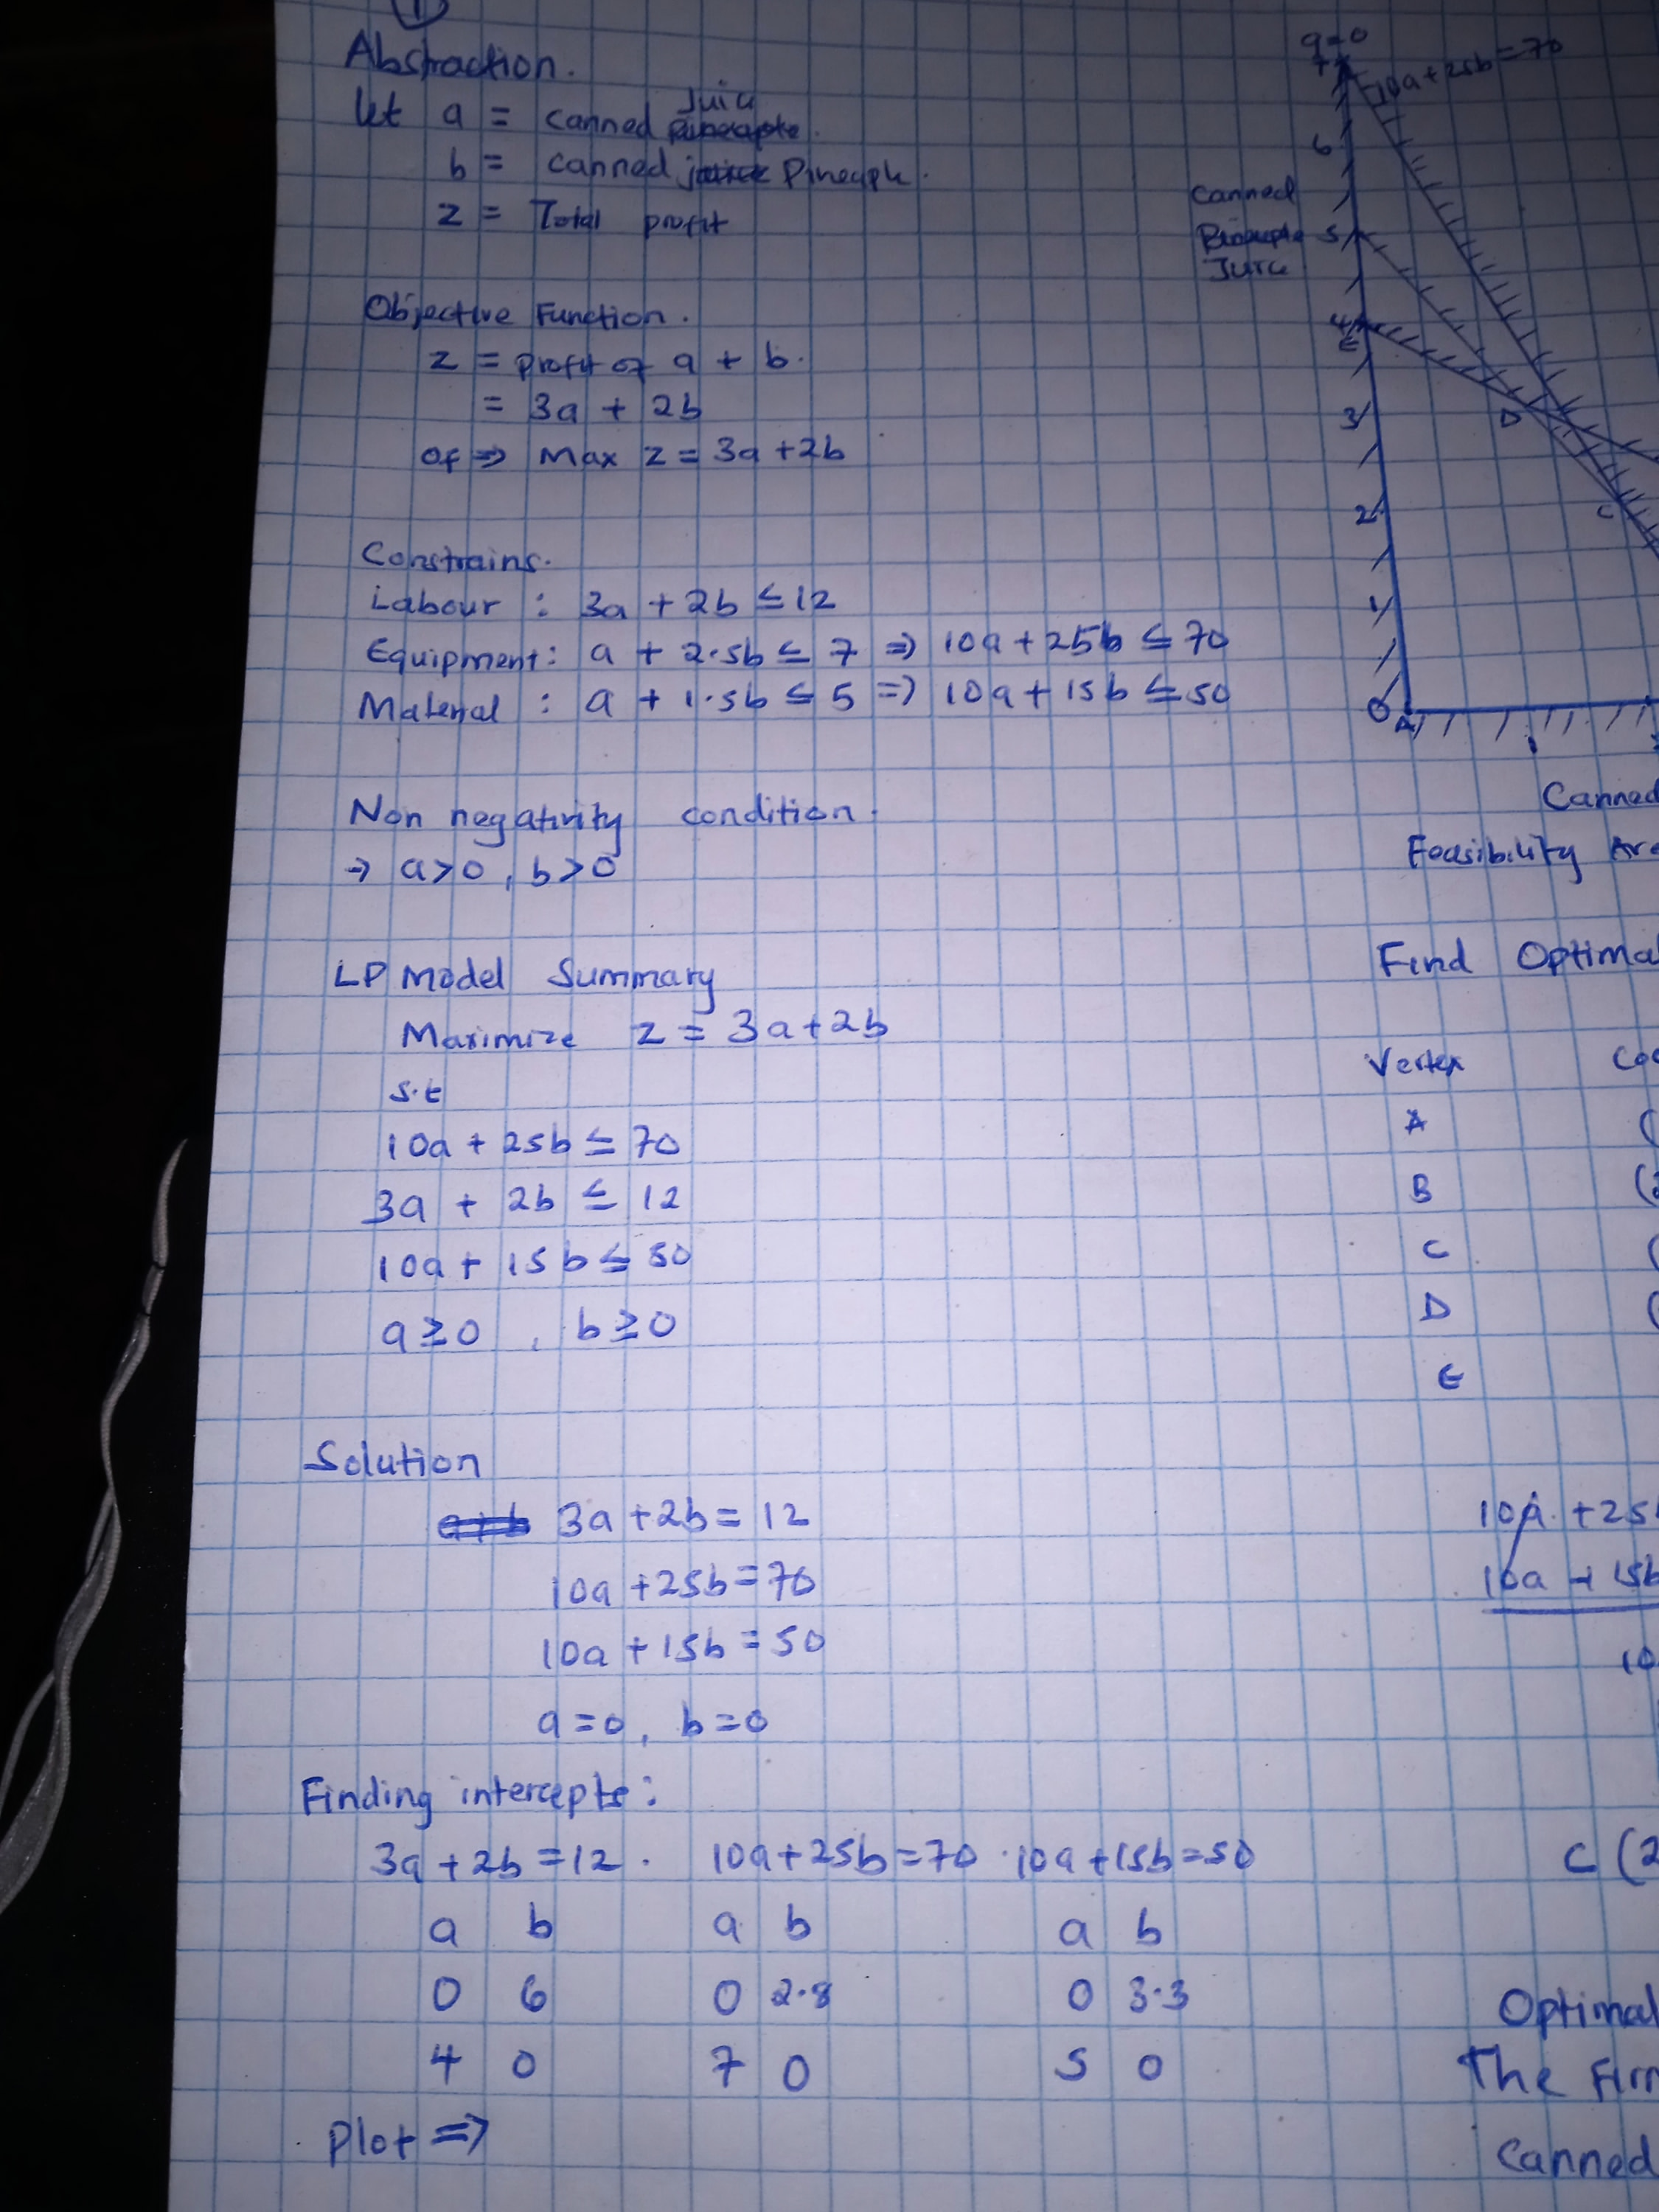 1
Abstraction.
Let a = canned Juice
b = canned Pineaple.
z = Total profit
Objective Function.
z = profit of a + b.
= 3a + 2b
of => Max z = 3a +2b
Constrains.
Labour : 3a + 2b ≤ 12
Equipment: a + 2.5b ≤ 7 => 10a + 25b ≤ 70
Material : a + 1.5b ≤ 5 => 10a + 15b ≤ 50
Non negativity condition.
→ a>0, b>0
LP Model Summary
Maximize z = 3a+2b
s.t
10a + 25b ≤ 70
3a + 2b ≤ 12
10a + 15b ≤ 50
a≥0, b≥0
Solution
3a +2b = 12
10a +25b = 70
10a + 15b = 50
a=0, b=0
Finding intercepts:
3a +2b = 12. 10a+25b=70 .10a+15b=50
a b a b a b
0 6 0 2.8 0 3.3
4 0 7 0 5 0
Plot =>
a=0
7
10a+25b=70
6
Canned
Juice
5
4
E
3
D
2
C
1
0
A
1
Canned
Feasibility
Find
Vertex
A
B
C
D
E
10a + 25
10a + 15b
10
C (2
Optimal
The
Canned